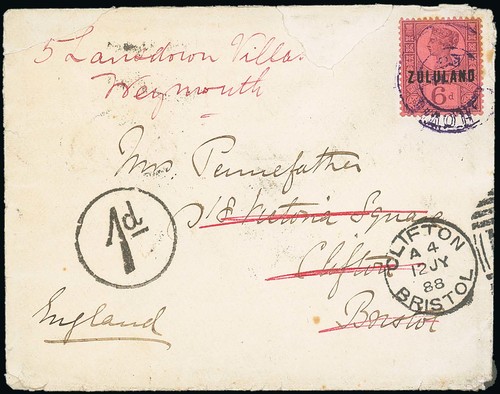 5 Lansdown Villas
Weymouth
ZULULAND
6d
Mrs. Pennefather
18 Victoria Square
Clifton
Bristol
England
1d
CLIFTON
A 4
12 JY
88
BRISTOL